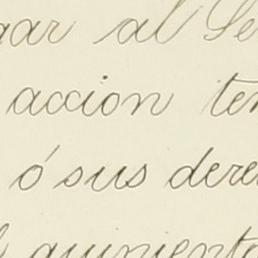 gar al Se
accion ten
ó sus dere
l quiniento